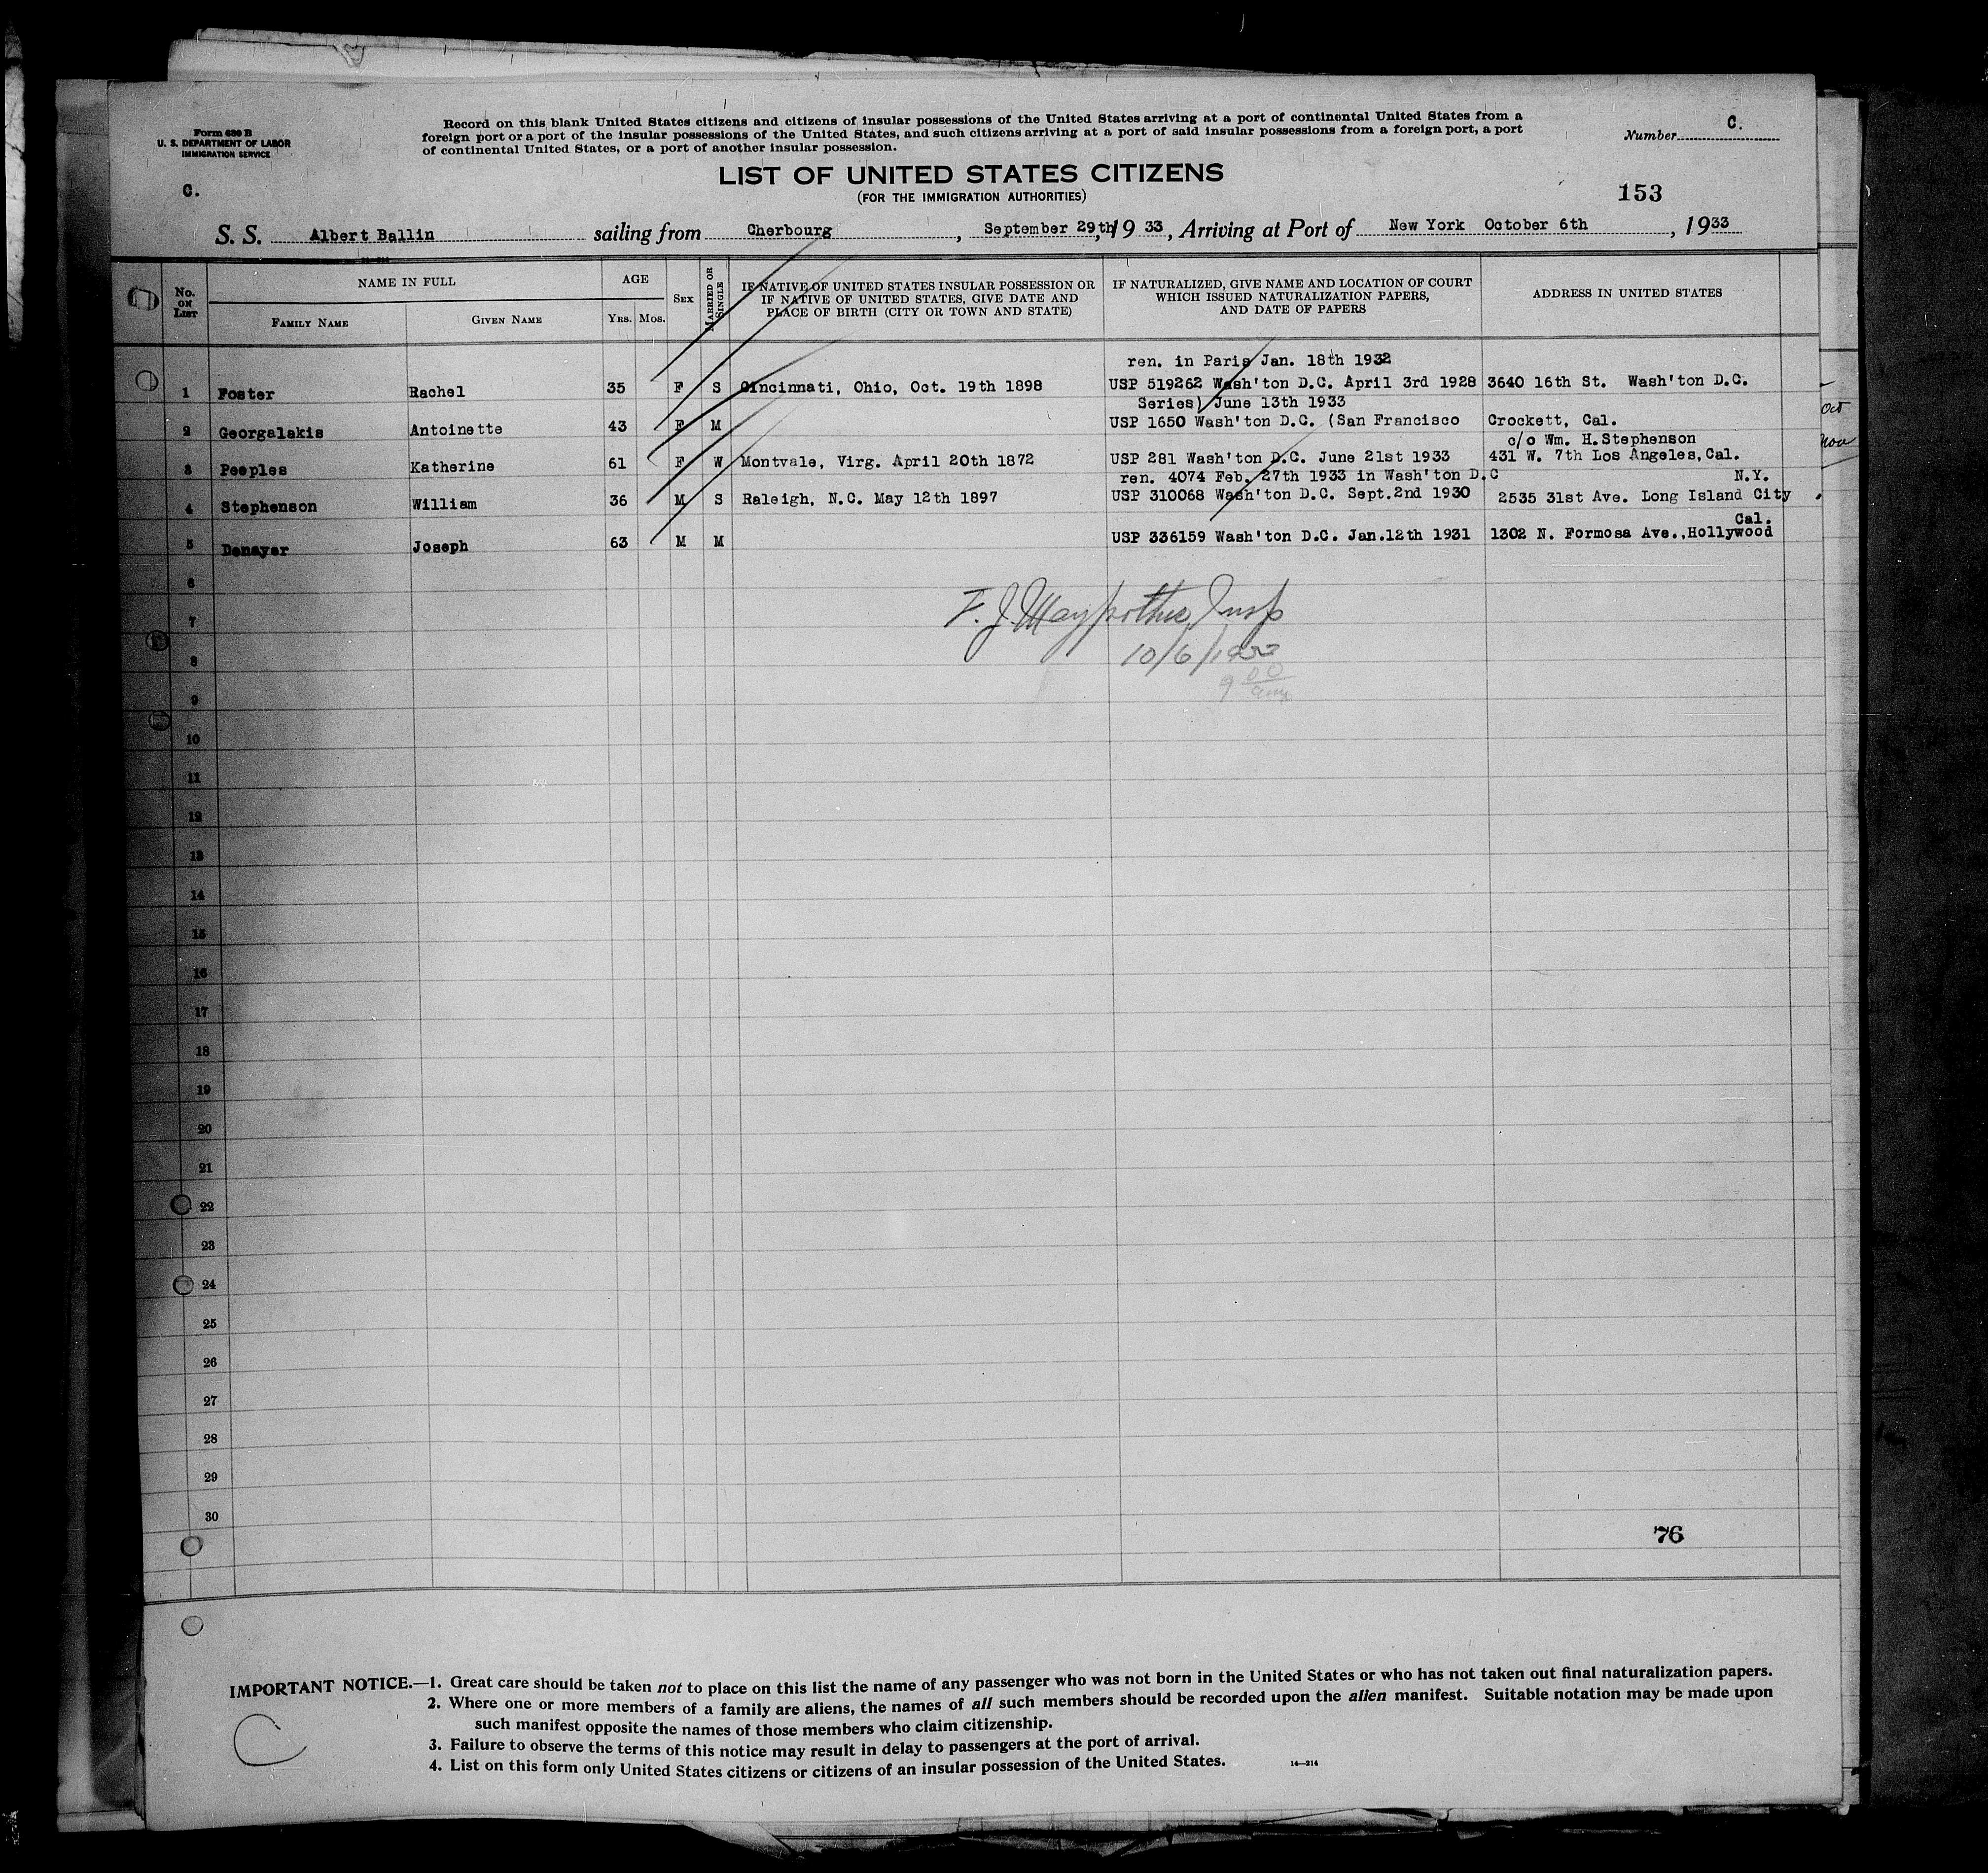 Form 630 B
U. S. DEPARTMENT OF LABOR
IMMIGRATION SERVICE
Record on this blank United States citizens and citizens of insular possessions of the United States arriving at a port of continental United States from a
foreign port or a port of the insular possessions of the United States, and such citizens arriving at a port of said insular possessions from a foreign port, a port
of continental United States, or a port of another insular possession.
Number C.
C.
LIST OF UNITED STATES CITIZENS
(FOR THE IMMIGRATION AUTHORITIES)
153
S. S. Albert Ballin sailing from Cherbourg, September 29th, 1933, Arriving at Port of New York October 6th, 1933
No. ON LIST
NAME IN FULL
FAMILY NAME
GIVEN NAME
AGE
YRS. MOS.
SEX
MARRIED OR SINGLE
IF NATIVE OF UNITED STATES INSULAR POSSESSION OR
IF NATIVE OF UNITED STATES, GIVE DATE AND
PLACE OF BIRTH (CITY OR TOWN AND STATE)
IF NATURALIZED, GIVE NAME AND LOCATION OF COURT
WHICH ISSUED NATURALIZATION PAPERS,
AND DATE OF PAPERS
ADDRESS IN UNITED STATES
ren. in Paris Jan. 18th 1932
1 Foster Rachel 35 F S Cincinnati, Ohio, Oct. 19th 1898 USP 519262 Wash'ton D.C. April 3rd 1928 3640 16th St. Wash'ton D.C.
Series) June 13th 1933
2 Georgalakis Antoinette 43 F M USP 1650 Wash'ton D.C. (San Francisco Crockett, Cal.
c/o Wm. H. Stephenson
3 Peeples Katherine 61 F W Montvale, Virg. April 20th 1872 USP 281 Wash'ton D.C. June 21st 1933 431 W. 7th Los Angeles, Cal.
ren. 4074 Feb. 27th 1933 in Wash'ton D.C N.Y.
4 Stephenson William 36 M S Raleigh, N.C. May 12th 1897 USP 310068 Wash'ton D.C. Sept.2nd 1930 2535 31st Ave. Long Island City
Cal.
5 Denayer Joseph 63 M M USP 336159 Wash'ton D.C. Jan.12th 1931 1302 N. Formosa Ave.,Hollywood
6
7
8
9
10
11
12
13
14
15
16
17
18
19
20
21
22
23
24
25
26
27
28
29
30
Insp
10/6/1933
9 00 am
76
IMPORTANT NOTICE.—1. Great care should be taken not to place on this list the name of any passenger who was not born in the United States or who has not taken out final naturalization papers.
2. Where one or more members of a family are aliens, the names of all such members should be recorded upon the alien manifest. Suitable notation may be made upon
such manifest opposite the names of those members who claim citizenship.
3. Failure to observe the terms of this notice may result in delay to passengers at the port of arrival.
4. List on this form only United States citizens or citizens of an insular possession of the United States. 14—214
C